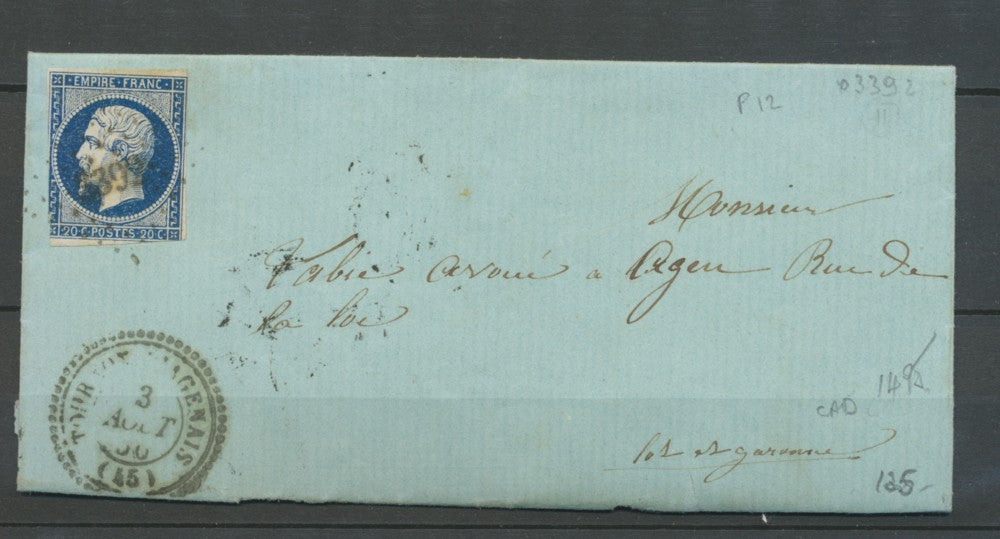 EMPIRE FRANC
20 C POSTES 20 C
P12
3392
11
Monsieur
avoué a Agen Rue de
la loi
AGENAIS
3
AOUT
(45)
CAD
lot et garonne
125-